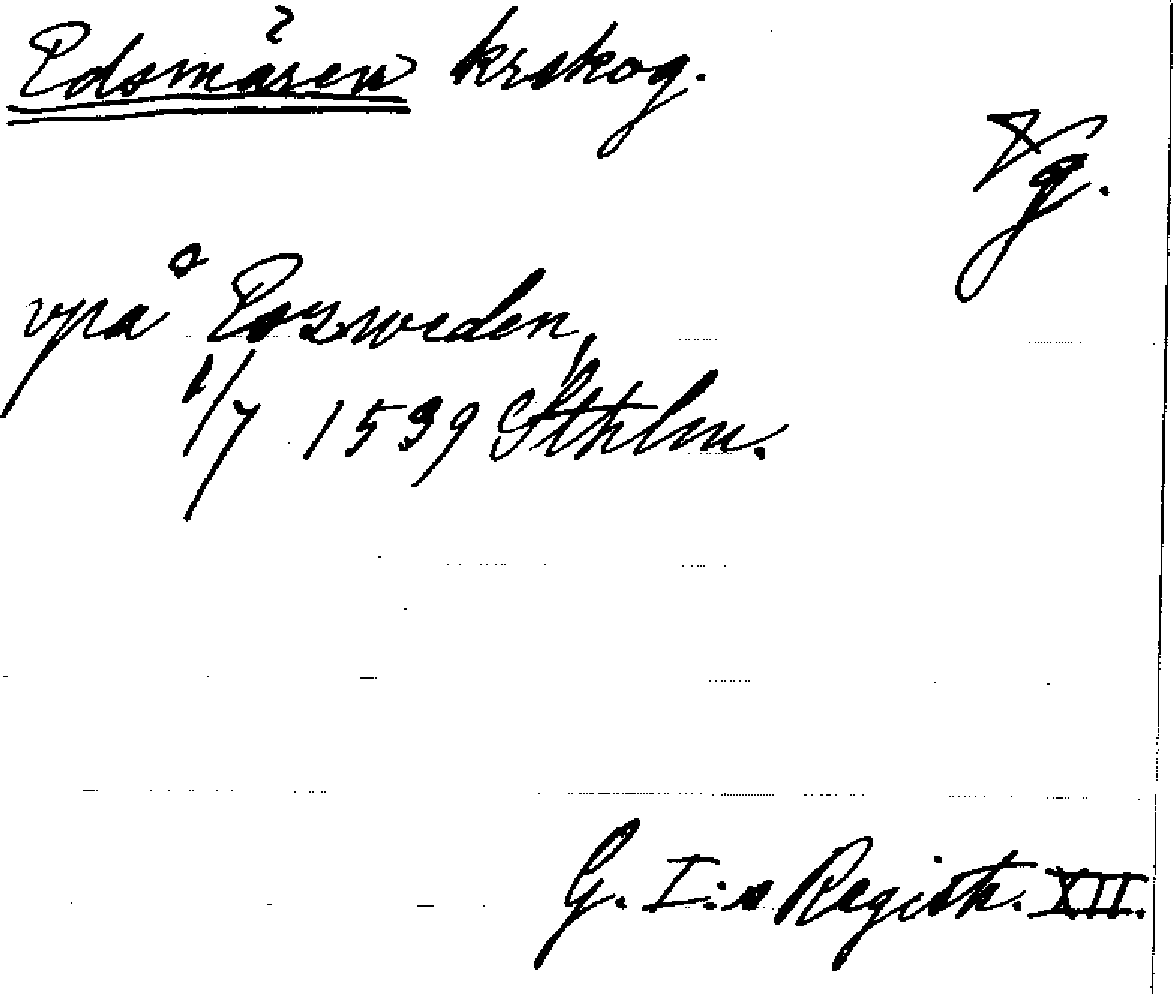 Edsmären krskog.
Vg.
vpå Eszweden,
1/7 1539 Sthlm.
G. I:s Registr. XII.